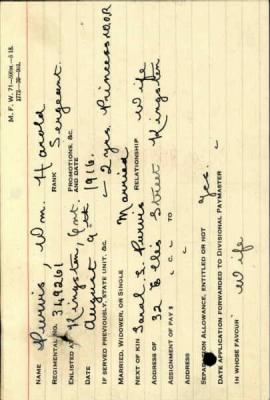 M. F. W. 71—500M.—5-18.
1772-39-941.
NAME Purvis, Wm. Harold
REGIMENTAL NO. 349261 RANK Sergeant.
ENLISTED AT Kingston, Ont. PROMOTIONS, &C. AND DATE
DATE August 9th 1916.
IF SERVED PREVIOUSLY, STATE UNIT, &C. 2 yrs. Princess
MARRIED, WIDOWER, OR SINGLE Married
NEXT OF KIN Sarah S. Purvis RELATIONSHIP Wife
ADDRESS OF 32 Ellis Street Kingston
ASSIGNMENT OF PAY $ TO
ADDRESS
SEPARATION ALLOWANCE, ENTITLED OR NOT Yes.
DATE APPLICATION FORWARDED TO DIVISIONAL PAYMASTER
IN WHOSE FAVOUR Wife